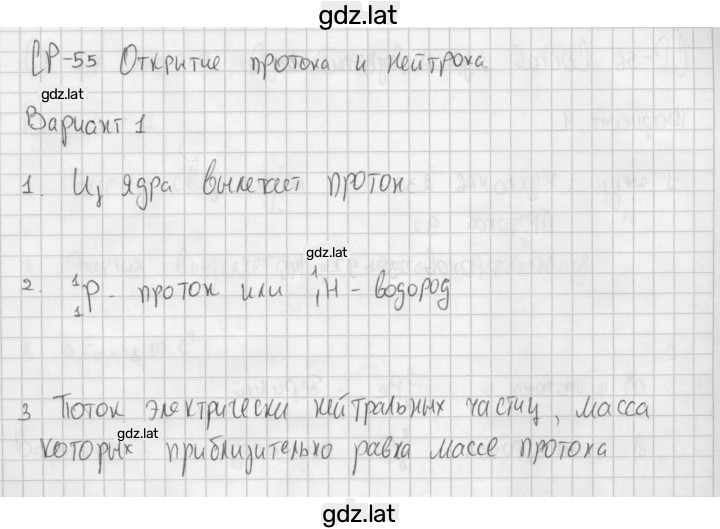 gdz.lat
СР-55 Открытие протона и нейтрона
gdz.lat
Вариант 1
1. Из ядра вылетает протон
gdz.lat
2. ¹₁P - протон или ¹₁H - водород
3 Поток электрически нейтральных частиц, масса
gdz.lat
которых приблизительно равна массе протона
gdz.lat